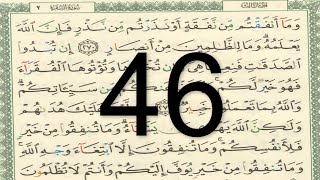 وَمَآ أَنفَقْتُم مِّن نَّفَقَةٍ أَوْ نَذَرْتُم مِّن نَّذْرٍ فَإِنَّ ٱللَّهَ
يَعْلَمُهُۥ وَمَا لِلظَّٰلِمِينَ مِنْ أَنصَارٍ ٢٧٠ إِن تُبْدُوا۟
ٱلصَّدَقَٰتِ فَنِعِمَّا هِىَ وَتُؤْتُوهَا ٱلْفُقَرَآءَ
فَهُوَ خَيْرٌ لَّكُمْ مِّن سَيِّـَٔاتِكُمْ
وَٱللَّهُ بِمَا تَعْمَلُونَ خَبِيرٌ عَلَيْكَ هُدَىٰهُمْ
وَلَٰكِنَّ ٱللَّهَ وَمَا تُنفِقُوا۟ مِنْ خَيْرٍ
فَلِأَنفُسِكُمْ وَمَا تُنفِقُونَ إِلَّا ٱبْتِغَآءَ وَجْهِ ٱللَّهِ
وَمَا تُنفِقُوا۟ مِنْ خَيْرٍ يُوَفَّ إِلَيْكُمْ وَأَنتُمْ لَا تُظْلَمُونَ
46